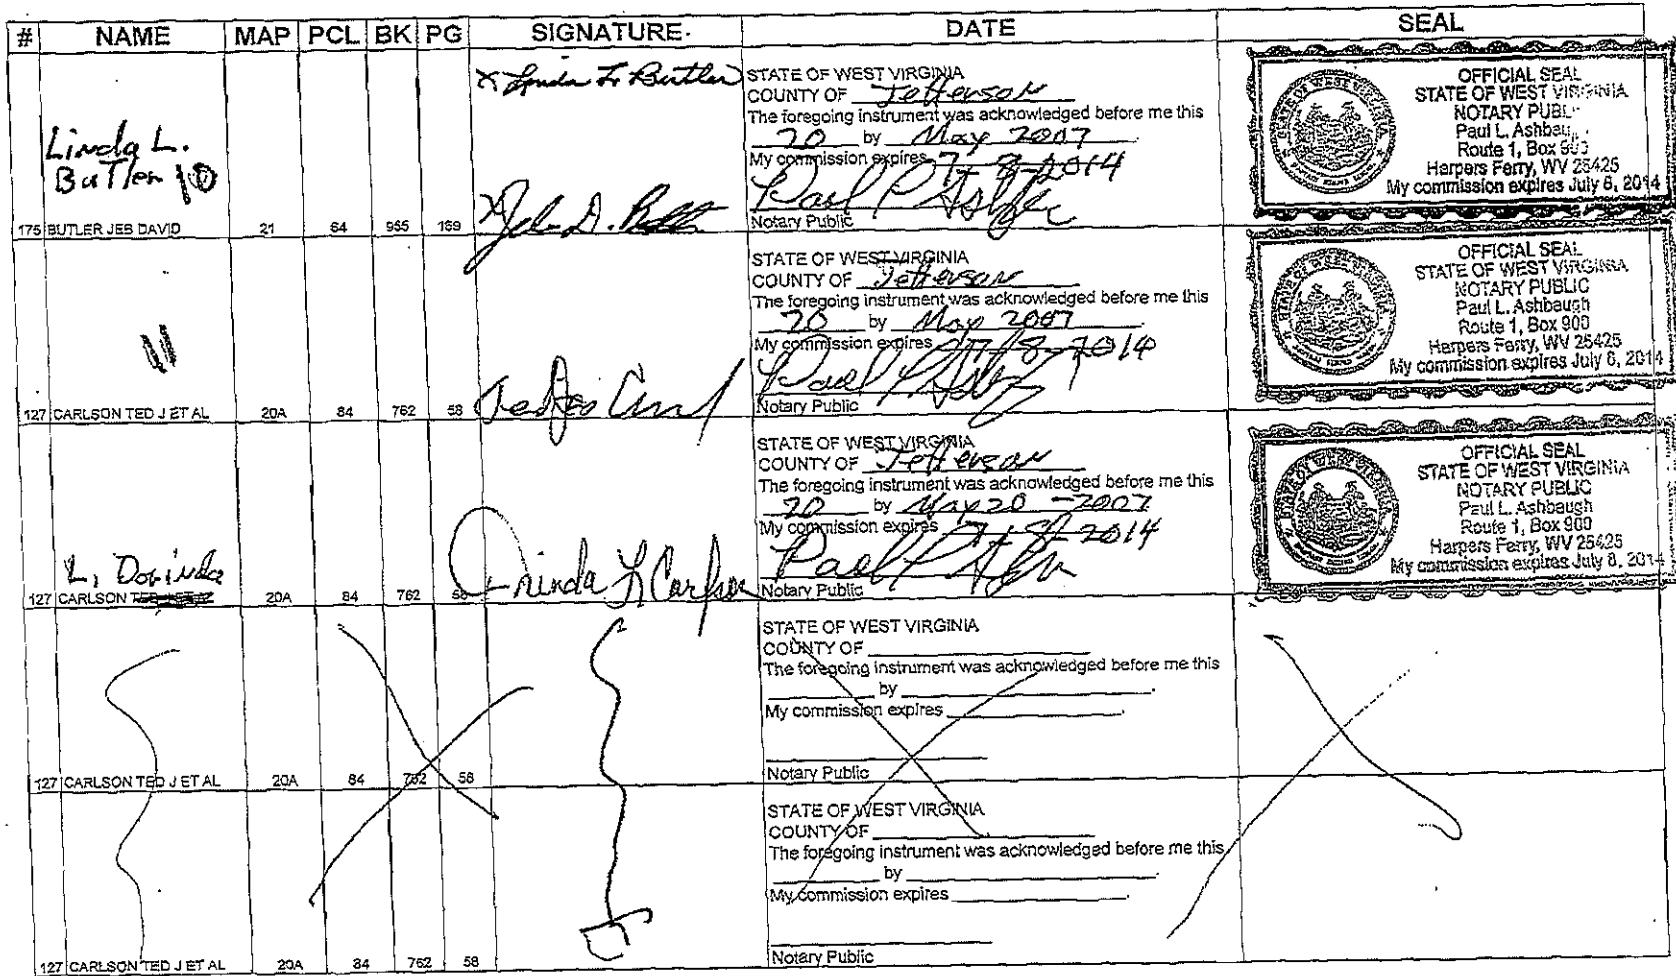 # NAME MAP PCL BK PG SIGNATURE DATE SEAL
Linda L.
Butler
175 BUTLER JEB DAVID 21 64 965 169
X Linda L. Butler
X Jeb D. Butler
STATE OF WEST VIRGINIA
COUNTY OF Jefferson
The foregoing instrument was acknowledged before me this
20 by May 2007
My commission expires 7-8-2014
Notary Public
OFFICIAL SEAL
STATE OF WEST VIRGINIA
NOTARY PUBL
Paul L. Ashbau
Route 1, Box
Harpers Ferry, WV 25425
My commission expires July 8, 2014
127 CARLSON TED J ET AL 20A 84 762 58
STATE OF WEST VIRGINIA
COUNTY OF Jefferson
The foregoing instrument was acknowledged before me this
20 by May 2007
My commission expires 7-8-2014
Notary Public
OFFICIAL SEAL
STATE OF WEST VIRGINIA
NOTARY PUBLIC
Paul L. Ashbaugh
Route 1, Box 900
Harpers Ferry, WV 25425
My commission expires July 8, 2014
L. Dorinda
127 CARLSON TED J ET AL 20A 84 762 58
Dorinda L Carlson
STATE OF WEST VIRGINIA
COUNTY OF Jefferson
The foregoing instrument was acknowledged before me this
20 by May 20 - 2007
My commission expires 7-8-2014
Notary Public
OFFICIAL SEAL
STATE OF WEST VIRGINIA
NOTARY PUBLIC
Paul L. Ashbaugh
Route 1, Box 900
Harpers Ferry, WV 25425
My commission expires July 8, 2014
127 CARLSON TED J ET AL 20A 84 762 58
STATE OF WEST VIRGINIA
COUNTY OF
The foregoing instrument was acknowledged before me this
by
My commission expires
Notary Public
127 CARLSON TED J ET AL 20A 84 762 58
STATE OF WEST VIRGINIA
COUNTY OF
The foregoing instrument was acknowledged before me this
by
My commission expires
Notary Public